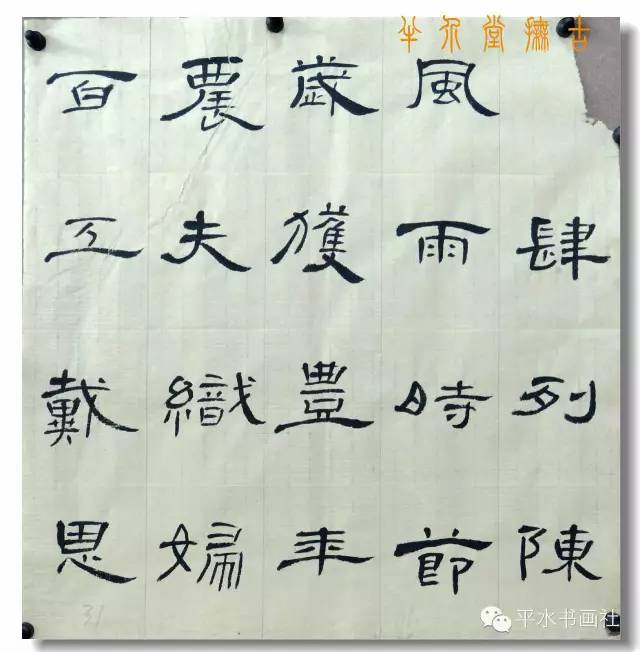 肆列陳
風雨時節
歲獲豊年
農夫織婦
百工戴恩
半 堂 古
31
平水书画社